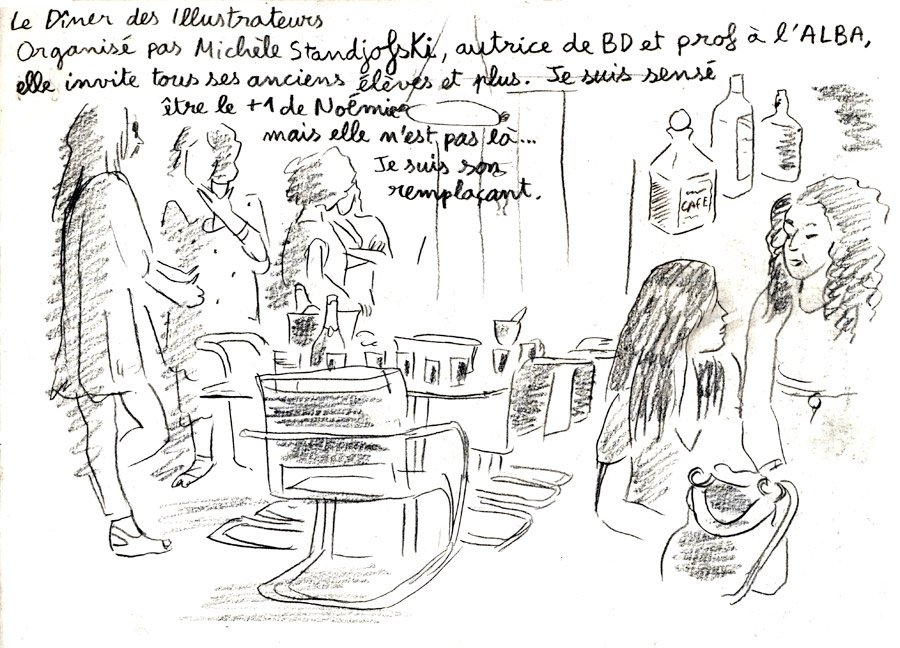 Le Dîner des Illustrateurs
Organisé pas Michèle Standjofski, autrice de BD et prof à l'ALBA,
elle invite tous ses anciens élèves et plus. Je suis sensé
être le +1 de Noémie
mais elle n'est pas là...
Je suis son
remplaçant.
CAFE